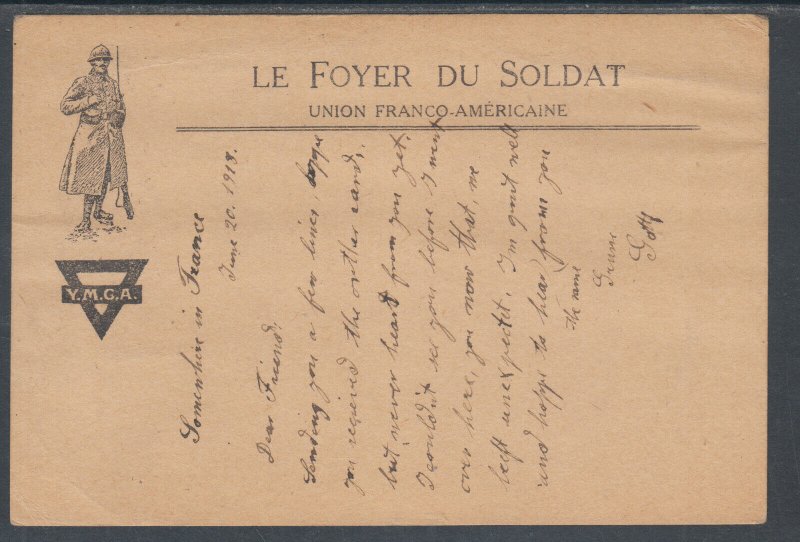 LE FOYER DU SOLDAT
UNION FRANCO-AMÉRICAINE
Y.M.C.A.
Somewhere in France
June 20. 1918.
Dear Friend:
Sending you a few lines, hope
you recieved the orther card,
but never heard from you yet.
I couldn't see you before I went
over here, you now that, we
left unexpectet. I'm quit well
and happi to hear from you
the same